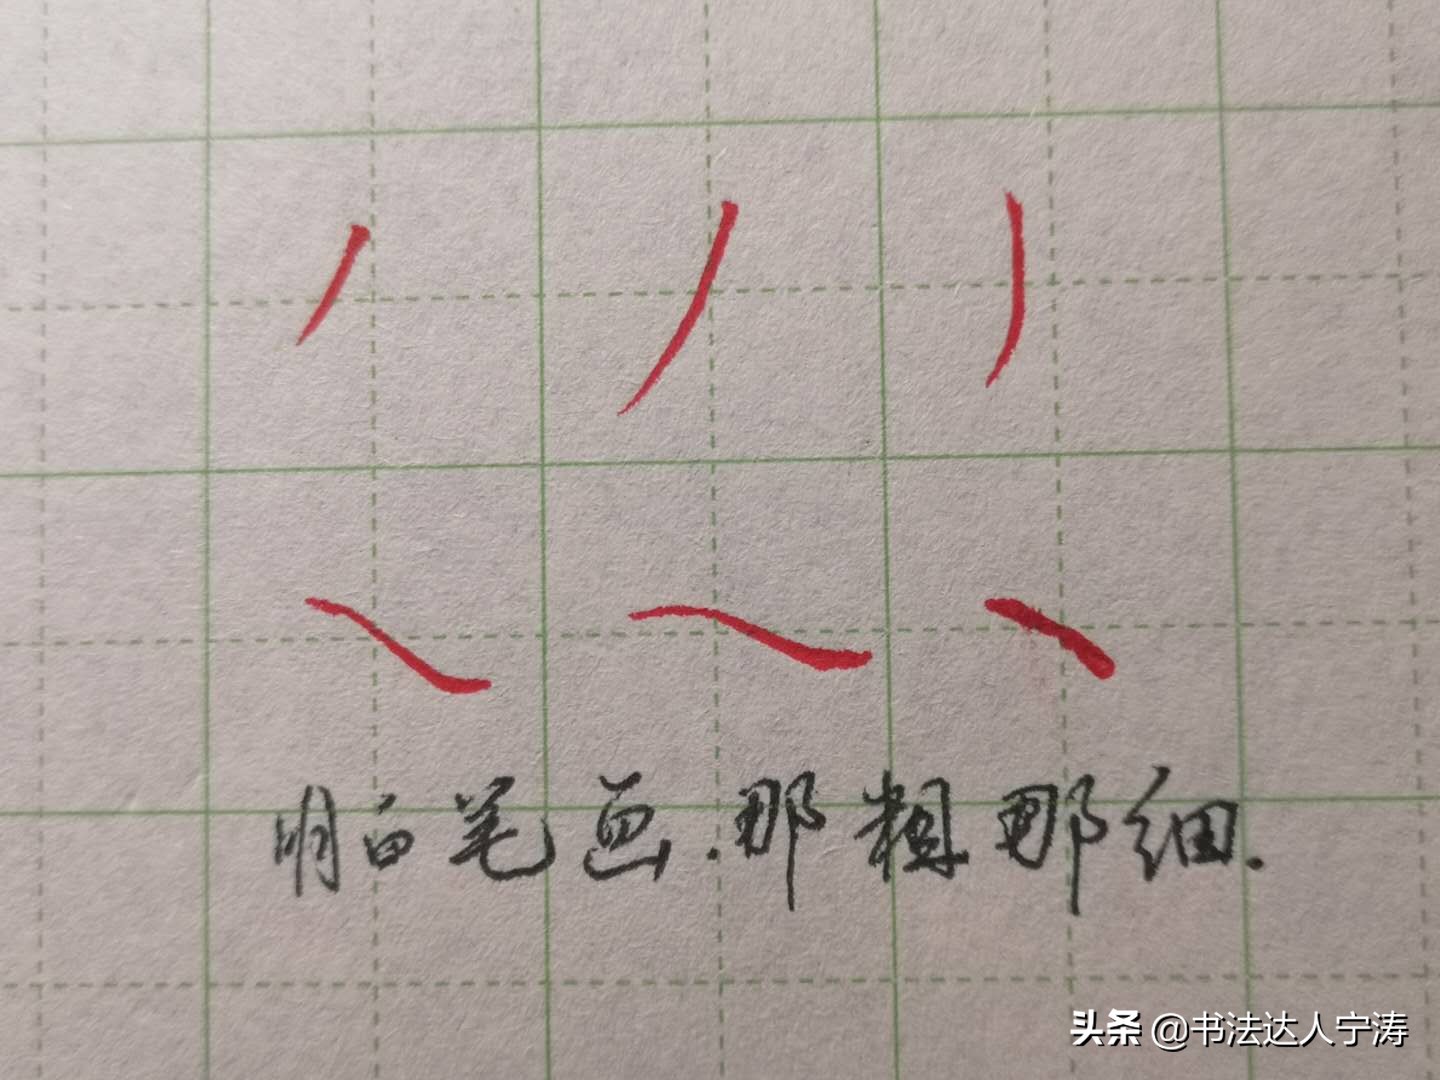 明白笔画.那粗那细.
头条 @书法达人宁涛